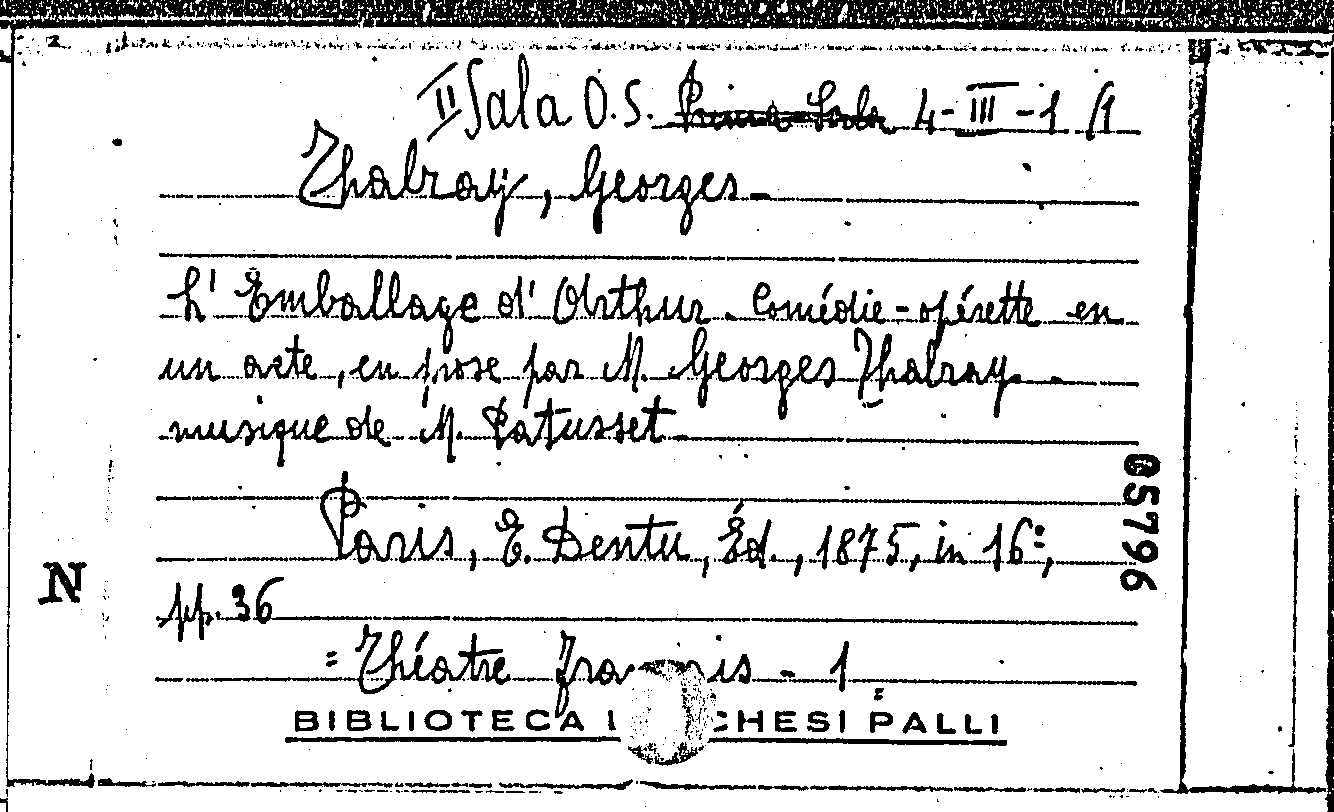 II Sala O.S. Prima Sala 4-III-1 /1
Thalray, Georges-
L'Emballage d'Arthur. Comédie-opérette en
un acte, en prose par M. Georges Thalray. -
musique de M. Patusset-
Paris, E. Dentu, Éd., 1875, in 16°,
pp. 36
= Théatre - 1 =
BIBLIOTECA PALLI
N
05796